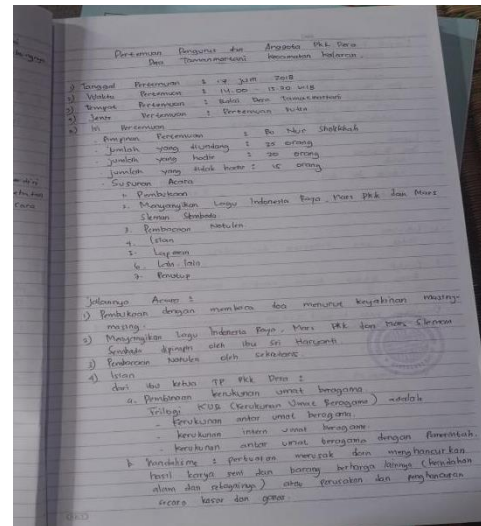 Pertemuan Pengurus dan Anggota PKK Desa
Desa Tamanmartani Kecamatan Kalasan
1) Tanggal Pertemuan : 17 Juli 2018
2) Waktu Pertemuan : 14.00 -
3) Tempat Pertemuan : Balai Desa Tamanmartani
4) Jenis Pertemuan : Pertemuan Rutin
5) Isi Pertemuan
· Pimpinan Pertemuan : Nur
· Jumlah yang diundang : 35 orang
Jumlah yang hadir : 20 orang
Jumlah yang tidak hadir : 15 orang
· Susunan Acara
1. Pembukaan
2. Menyanyikan Lagu Indonesia Raya, Mars PKK dan Mars
Sleman Sembada
3. Pembacaan Notulen
4. Isian
5. Laporan
6. Lain-lain
7. Penutup
Jalannya Acara :
1) Pembukaan dengan membaca doa menurut keyakinan masing-
masing.
2) Menyanyikan Lagu Indonesia Raya, Mars PKK dan Mars Sleman
Sembada dipimpin oleh ibu Sri Haryanti
3) Pembacaan Notulen oleh sekretaris
4) Isian
dari ibu ketua TP PKK Desa :
a. Pembinaan kerukunan umat beragama
Trilogi KUB (Kerukunan Umat Beragama) adalah
- kerukunan antar umat beragama.
- kerukunan intern umat beragama.
- kerukunan antar umat beragama dengan Pemerintah.
b. Vandalisme : perbuatan merusak dan menghancurkan
hasil karya seni dan barang berharga lainnya (keindahan
alam dan sebagainya) atau perusakan dan penghancuran
secara kasar dan ganas.